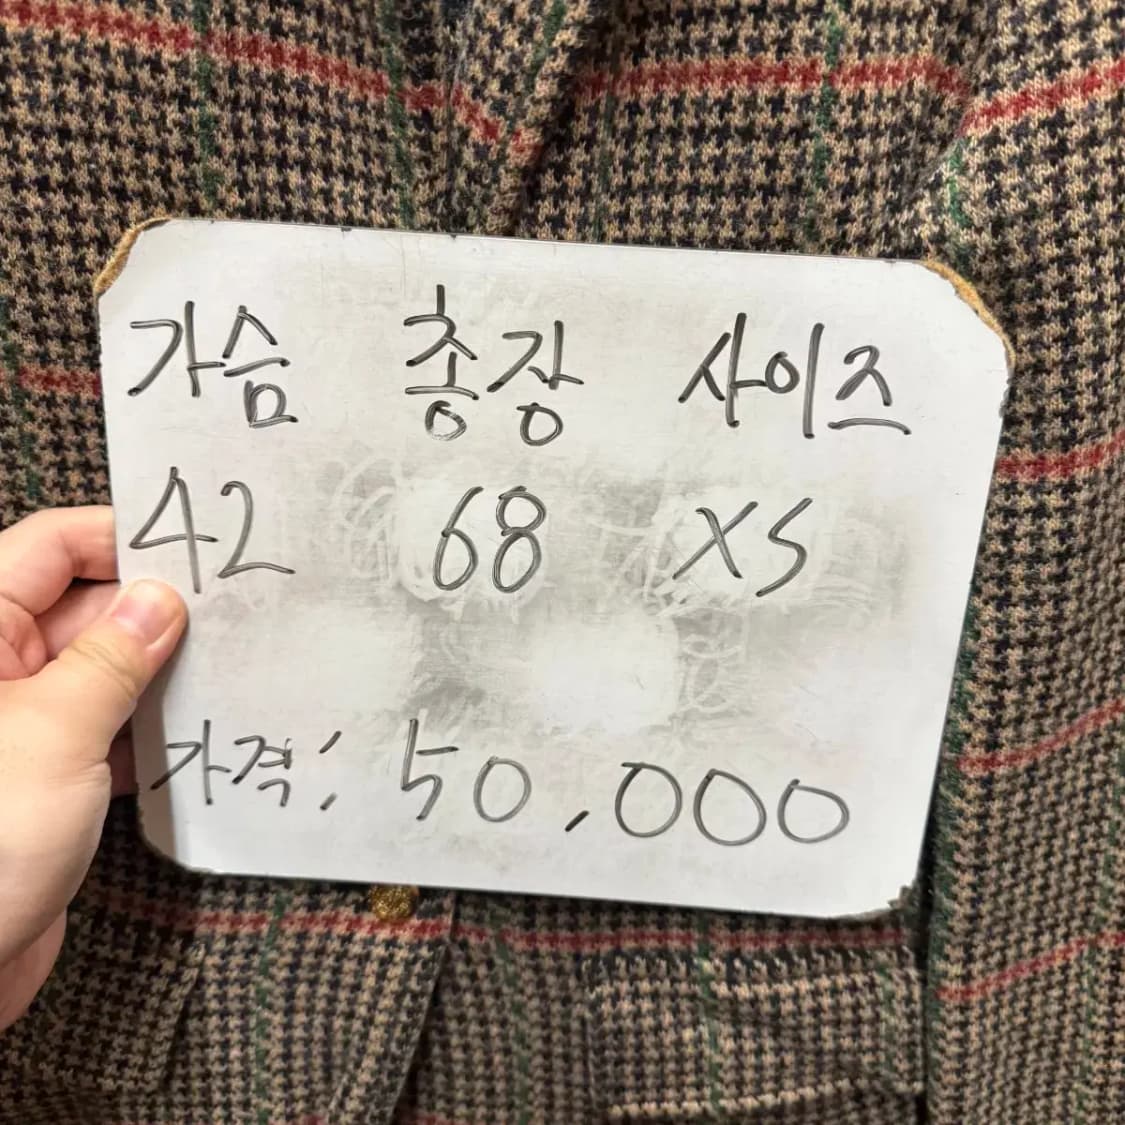 가슴 총장 사이즈
42 68 XS
가격: 50,000